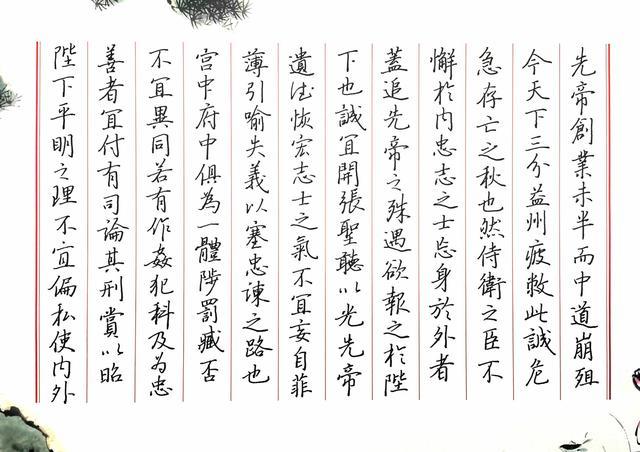 先帝創業未半而中道崩殂
今天下三分益州疲敝此誠危
急存亡之秋也然侍衛之臣不
懈於内忠志之士忘身於外者
蓋追先帝之殊遇欲報之於陛
下也誠宜開張聖聽以光先帝
遺德恢宏志士之氣不宜妄自菲
薄引喻失義以塞忠諫之路也
宫中府中俱為一體陟罰臧否
不宜異同若有作姦犯科及为忠
善者宜付有司論其刑賞以昭
陛下平明之理不宜偏私使内外